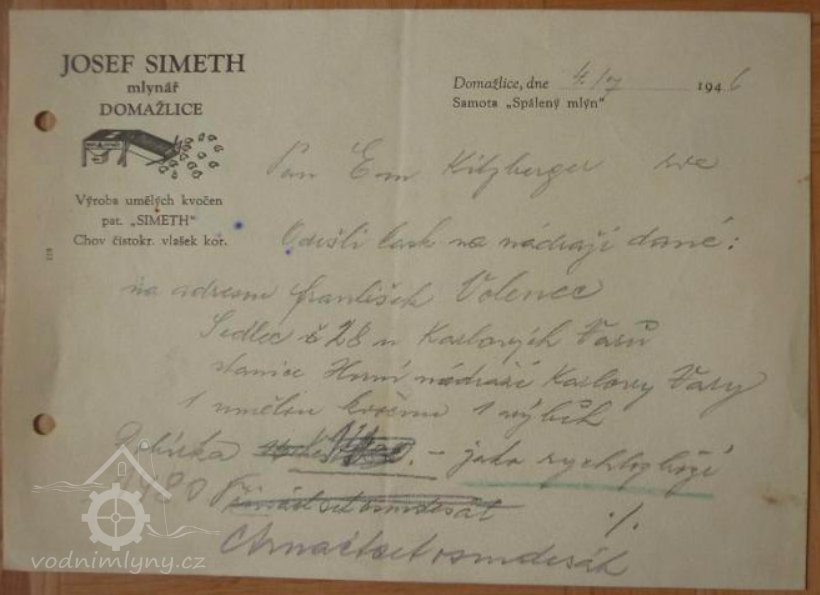 JOSEF SIMETH
mlynář
DOMAŽLICE
Výroba umělých kvočen
pat. „SIMETH"
Chov čistokr. vlašek kor.
Domažlice, dne 4./ 1946
Samota „Spálený mlýn"
Pan Em Kitzberger
Odešli lask na nádraží dané:
na adresu František Volenec
Sedlec č 28 u Karlových Varů
stanice Horní nádraží Karlovy Vary
1 umělou kvočnu 1 výběh
Dobírka - jako rychlozboží
1480
./.
Čtrnáctset osmdesát
vodnimlyny.cz